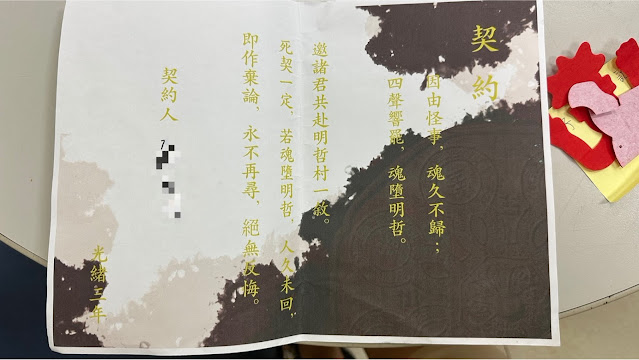 契約
因由怪事，魂久不歸；
四聲響罷，魂墮明哲。
邀諸君共赴明哲村一敘。
死契一定，若魂墮明哲，人久未回，
即作棄論，永不再尋，絕無反悔。
契約人
光緒三年